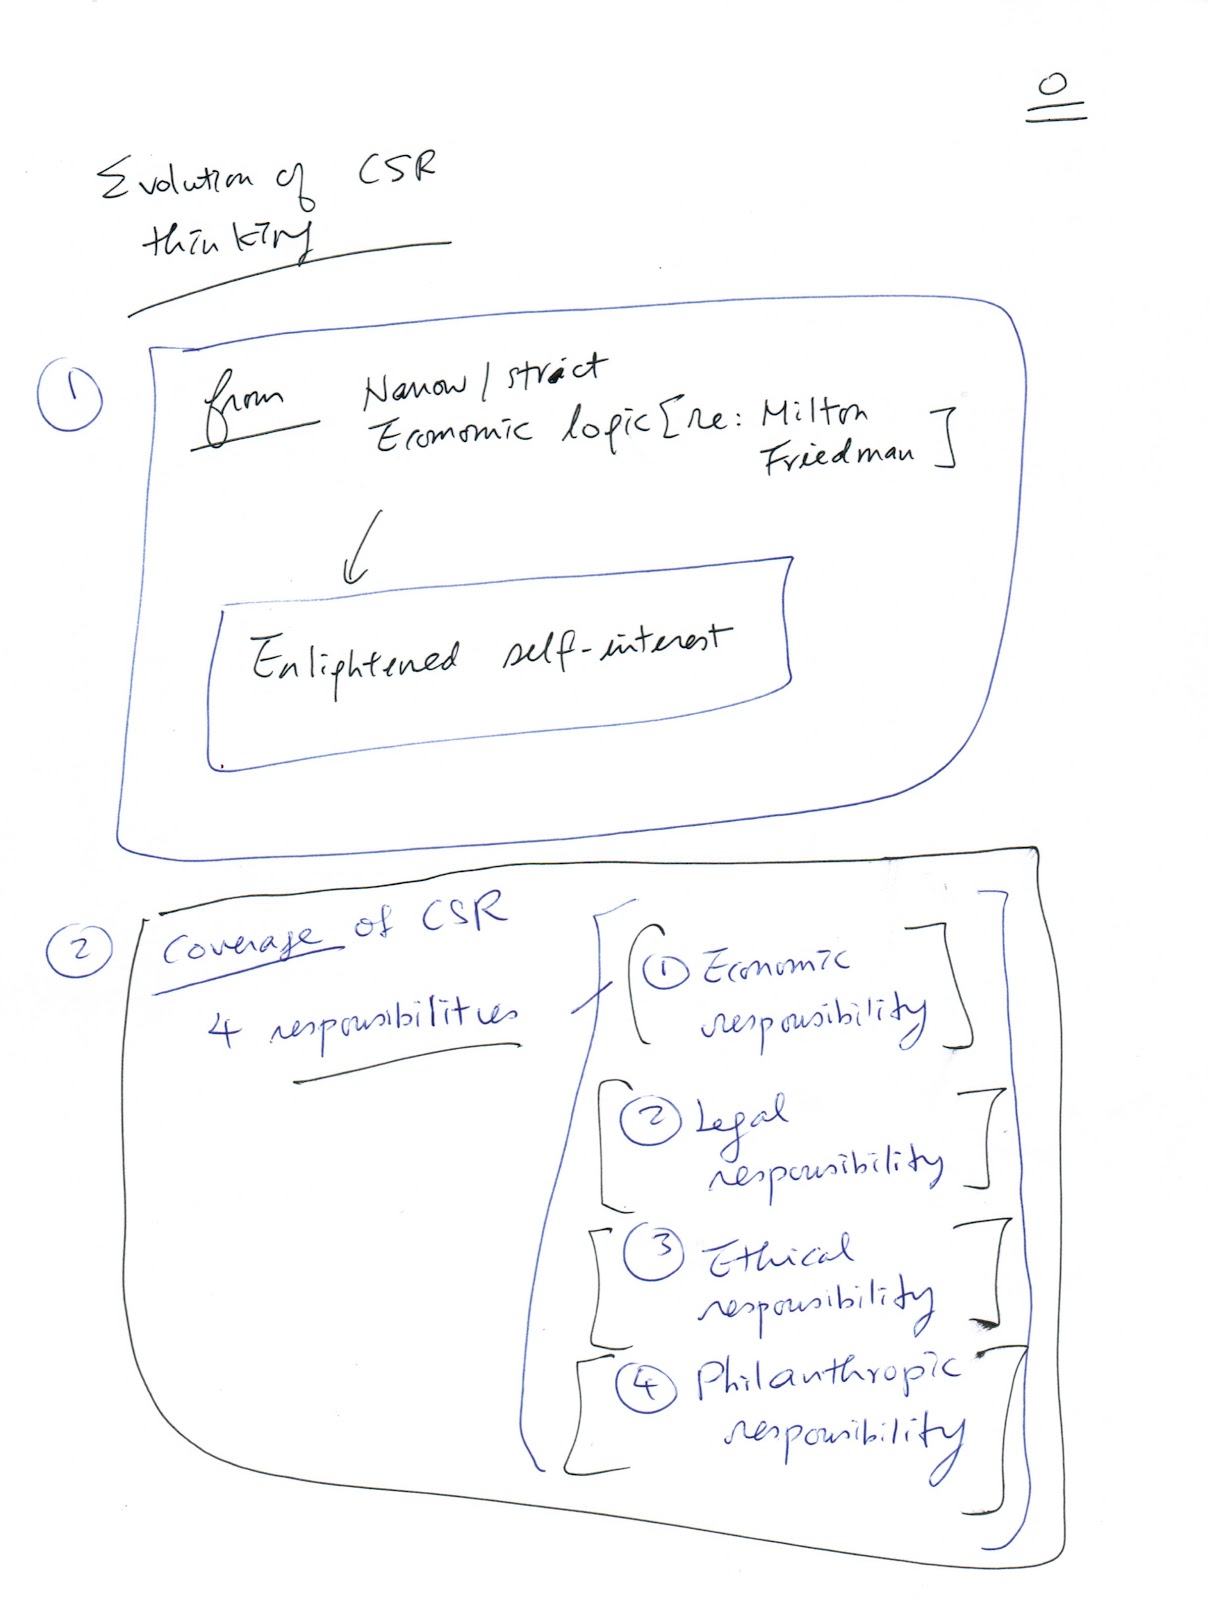 0
Evolution of CSR
thinking
① from Narrow / strict
Economic logic [re: Milton
Friedman]
Enlightened self-interest
② Coverage of CSR
4 responsibilities
① Economic
responsibility
② Legal
responsibility
③ Ethical
responsibility
④ Philanthropic
responsibility